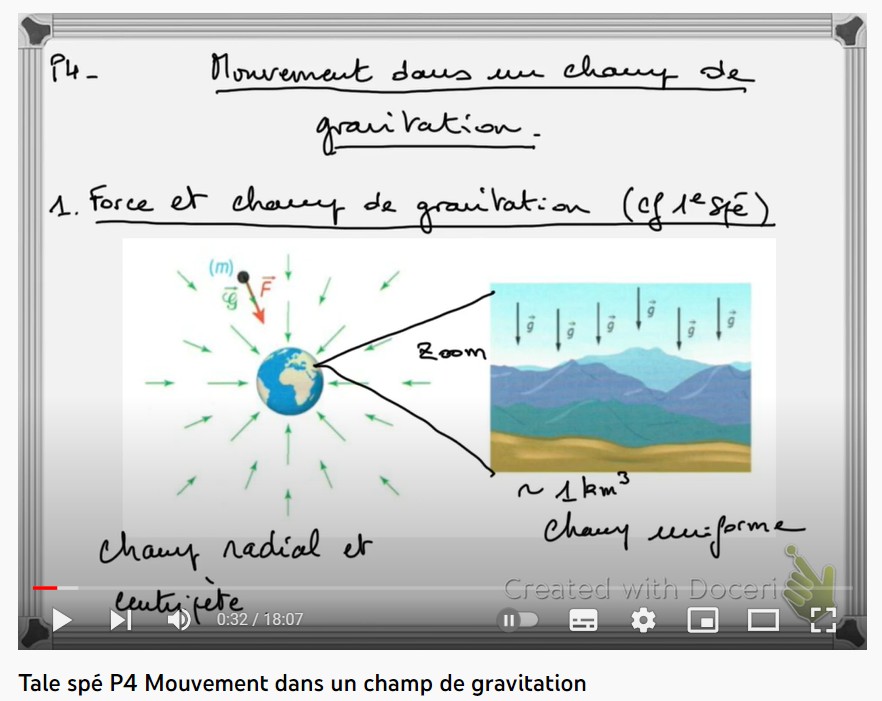 P4_ Mouvement dans un champ de
gravitation.
1. Force et champ de gravitation (cf 1e spé)
(m)
F
G
Zoom
g g g g g g
~ 1 km³
champ uniforme
champ radial et
centripète
Created with Doceri
0:32 / 18:07
Tale spé P4 Mouvement dans un champ de gravitation